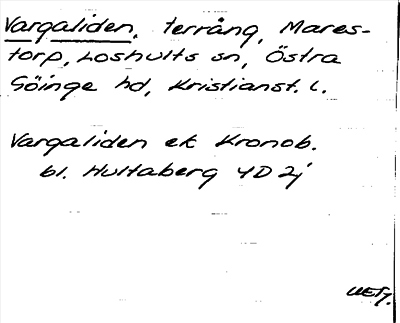 Vargaliden, terräng, Mares-
torp, Loshults sn, Östra
Göinge hd, Kristianst. l.
Vargaliden ek Kronob.
bl. Hultaberg 4D 2j